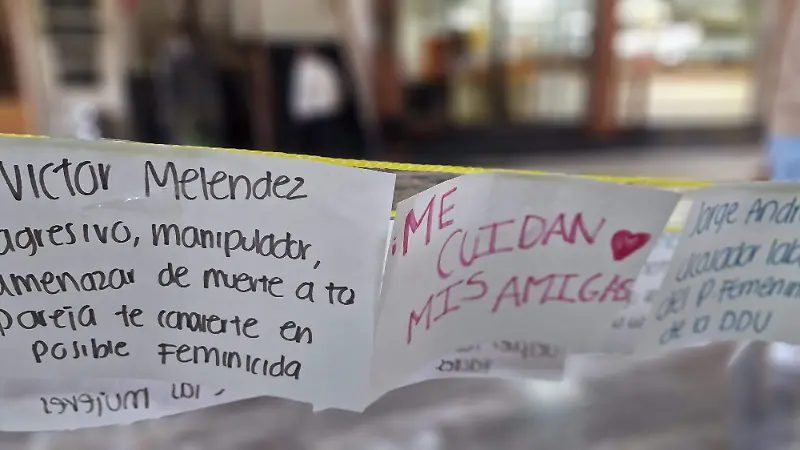 VICTOR MELENDEZ
agresivo, manipulador,
amenazar de muerte a tu
pareja te convierte en
posible Feminicida
¡ME
CUIDAN
MIS AMIGAS
Jorge Andr
del P. Femenin
de la DDU